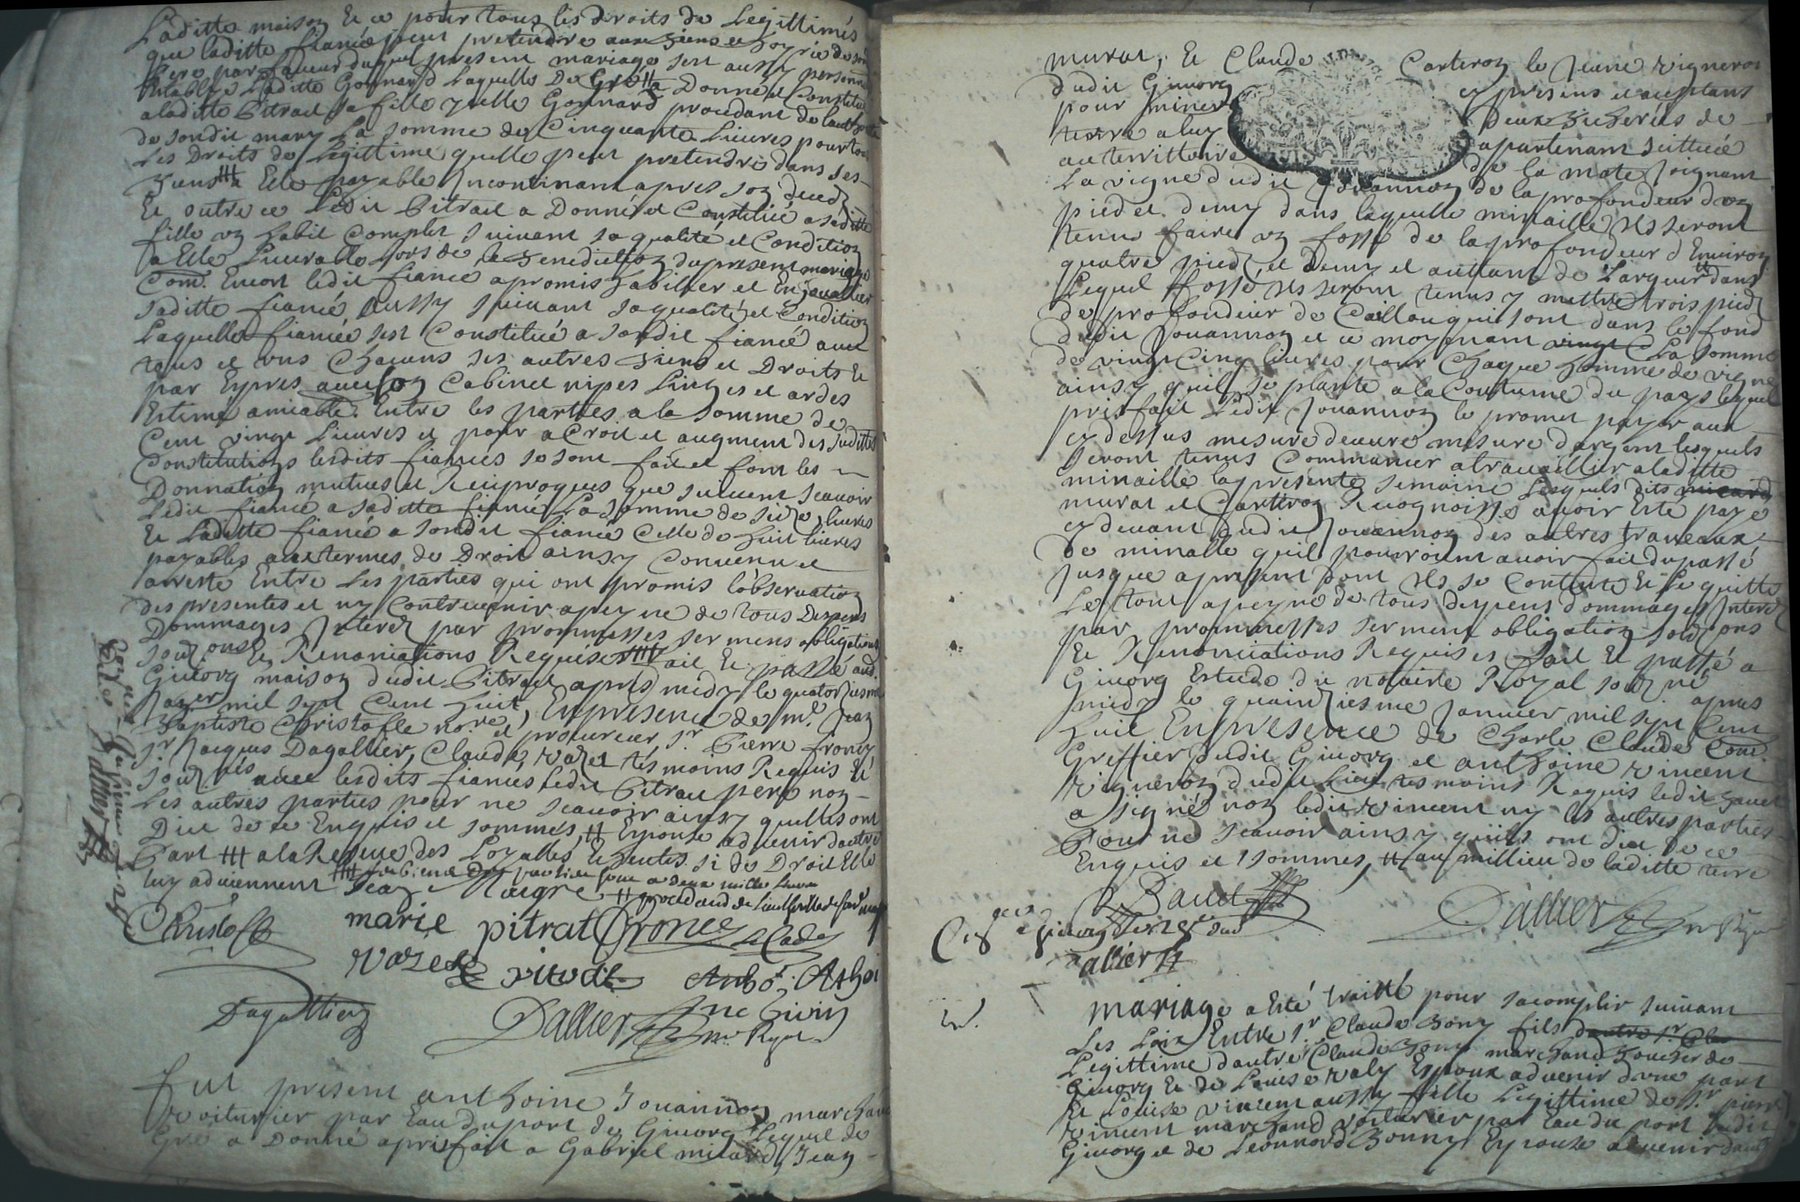 Laditte maison Et ce pour tous les droits de Legittimés
que laditte fiancée peut pretendre aux biens et hoyrie de son
Pere par faveur duquel present mariage sest aussy personne
Establye Laditte Gonnard Laquelle De Gré a Donné et Constitué
a laditte Pitrat sa fille ycelle Gonnard procedant de lauthorité
de sondit mary La somme de Cinquante Livres pour tous
Les Droits de Legittime quelle peut pretendre dans ses
biens Et payable Incontinant apres son deces
Et outre ce Ledit Pitrat a Donné et Constitué a saditte
fille un habit Complet suivant sa qualité et Condition
a Elle Livrable Lors de la benediction du present mariage
Com. Encor ledit fiancé a promis habiller et Enjouallier
saditte fiancée Aussy suivant sa qualité et Condition
Laquelle fiancée sest Constitué a sondit fiancé avec
tous et uns Chacuns ses autres biens et Droits Et
par Expres avec son Cabinet nipes Linges et ardes
Estimé amiable. Entre les parties a la somme de
Cent vingt Livres et pour acroit et augment desdittes
Constitutions lesdits fiancés se sont fait et font les
Donnation mutues et Reciproques que suivent scavoir
Ledit fiancé a saditte fiancée La somme de seize livres
Et Laditte fiancée a sondit fiancé Celle de huit livres
payables aux termes de Droit ainsy Convenu et
arresté Entre les parties qui ont promis lobservation
des presentes et ny Contrevenir a peyne de tous Despens
Dommages Interez par prommesses sermens obligations
Et Renonciations Requises fait Et passé aud.
Givorg maison dudit Pitrat apres midy le quatorziesme
Janer mil sept Cent huit, En presence de me. Jean
Baptiste Christofle no.re et procureur sr. Pierre fronez
sr Jacques Dagallier, Claude vazel tesmoins Requis Et
avec lesdits fiancés ledit Pitrat pere non
Les autres parties pour ne scavoir ainsy quelles ont
Dit de ce Enquis et sommés, # Espouse advenir dautre
Part ### a la Reserve des Loyalles Echeutes si de Droit Elle
luy adviennent
Christofle
marie pitrat fronez
vazel
Dagallier
Dallier no. Royal
fut present anthoine Jouannon marchand
voiturier par Eau du port de Givorg Lequel de
Gré a Donné a prisfait a Gabriel micard, Jean
murat, Et Claude Carteron le Jeune vigneron
dudit Givorg cy presens et aceptans
pour miner deux bicherées de
terre a luy apartenant scittuée
au territtoire de la mate Joignant
La vigne dudit Jouannon de la profondeur dun
pied et demy dans laquelle minaille Ils seront
tenu faire un fossé de la profondeur dEnviron
quatre pied et demy et auttant de Largeur dans
Lequel fossé Ils seront tenus y mettre trois pied
de profondeur de Caillou qui sont dans le fond
dudit Jouannon et ce moyenant vingt La somme
de vingt Cinq livres pour Chaque homme de vigne
ainsy quil se plante a la Coustume du pays lequel
prisfait Ledit Jouannon le promet payer aux
cy dessus mesure deuvre mesure dargent lesquels
seront tenus Commancer a travaillier a laditte
minaille la presente semaine Lesquels dits micard
murat et Cartteron Recognoisse avoir Esté payé
cy devant dudit Jouannon des autres travaux
de minaille quil pourroient avoir fait du passé
Jusque apresent dont Ils se Contente Et le quitte
Le tout a peyne de tous despens dommages Interez
par prommesses serment obligation
Et Renonciations Requises fait Et passé a
Givorg Estude du notaire Royal apres
midy le quainziesme Janvier mil sept Cent
huit En presence de Charle Claude
Greffier dudit Givorg et anthoine vincent
vigneron dudit Lieu tesmoins Requis ledit baud
a signé non ledit vincent ny les autres parties
Pour ne scavoir ainsy quils ont dit de ce
Enquis et sommés, # au millieu de laditte terre
Baud
Dallier no. Royal
mariage a Esté traitté pour sacomplir suivant
Les Loix Entre sr Claude bony fils
Legittime dautre Claude bony marchand boucher de
Givorg Et de Louise valy Espoux advenir dune part
Et Louise vincent aussy fille Legittime de sr pierre
vincent marchand voiturier par Eau du port dudit
Givorg et de Leonnord bonny Espouze advenir dautre